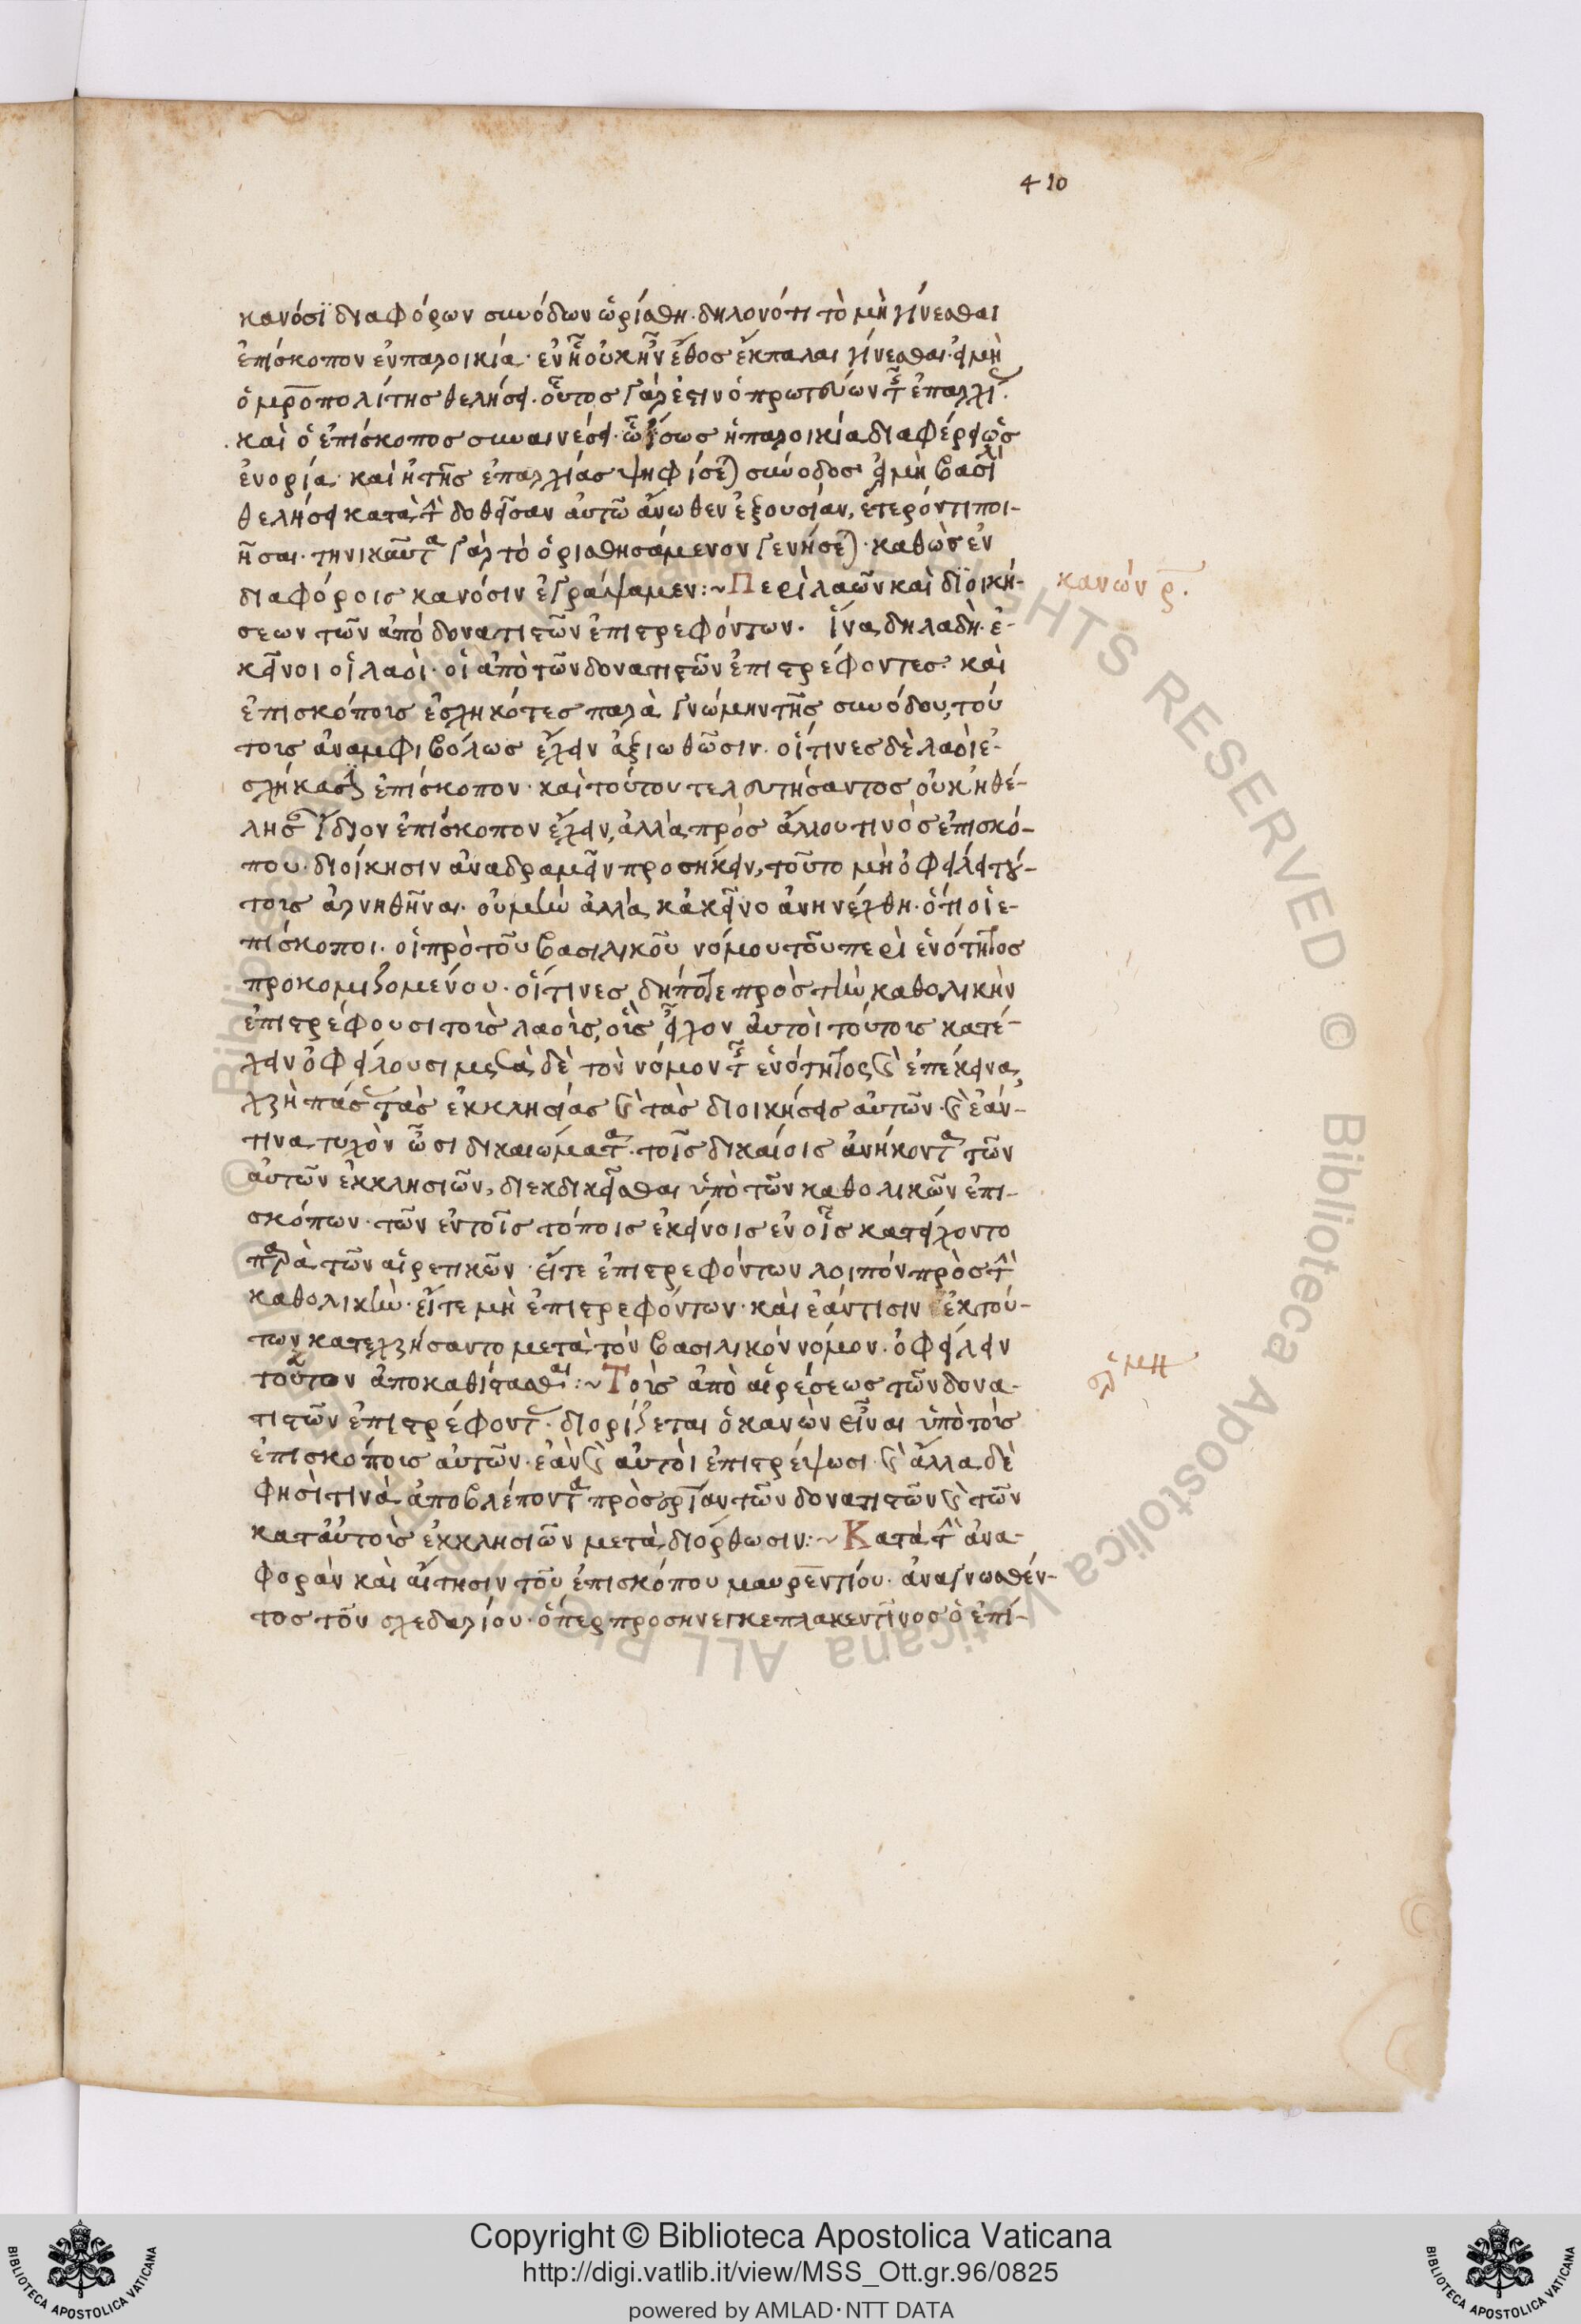 410
κανόσϊ διαφόρων συνόδων ὡρίσθη· δηλονότι τὸ μὴ γίνεσθαι
ἐπίσκοπον ἐν παροικία· ἐν ἧ οὐκ ἦν ἔθος ἔκπαλαι γίνεσθαι· εἰ μὴ
ὁ μρ̅οπολίτης θελήσει· οὗτος γάρ ἐστιν ὁ πρωτεύων τῆς ἐπαρχί
καὶ ὁ ἐπίσκοπος συναινέσει· ὧ ἴσως ἡ παροικία διαφέρει ὡς
ἐνορία· καὶ ἡ τῆς ἐπαρχίας ψηφίσεται σύνοδος εἰ μὴ βασι
θελήσει κατὰ τὴν δοθεῖσαν αὐτῶ ἄνωθεν ἐξουσίαν, ἑτερόν τι ποι-
ῆσαι· τηνικαῦτα γὰρ τὸ ὁρισθησάμενον γενήσεται· καθὼς ἐν
διαφόροις κανόσιν ἐγράψαμεν:~ Περὶ λαῶν καὶ διοικη- κανών ρ̅.
σεων τῶν ἀπό δονατιστῶν ἐπιστρεφόντων· ἵνα δηλαδὴ ἐ-
κεῖνοι οἱ λαοὶ· οἱ ἀπὸ τῶν δονατιστῶν ἐπιστρέφοντες καὶ
ἐπισκόποις ἐσχηκότες παρὰ γνώμην τῆς συνόδου, τού
τοις ἀναμφιβόλως ἔχειν ἀξιωθῶσιν· οἵτινες δὲ λαοὶ ἐ-
σχήκασιν ἐπίσκοπον· καὶ τούτου τελευτήσαντος οὐκ ἠθέ-
λησαν ἴδιον ἐπίσκοπον ἔχειν, ἀλλὰ πρὸς ἄλλου τινὸς ἐπισκό-
που διοίκησιν ἀναδραμεῖν προσήκειν, τοῦτο μὴ ὀφείλει τού-
τοις ἀρνηθῆναι· οὐ μὴν ἀλλὰ κἀκεῖνο ἀνηνέχθη· ὅτι οἱ ἐ-
πίσκοποι· οἱ πρὸ τοῦ βασιλικοῦ νόμου τοῦ περὶ ἑνότητος
προκομιζομένου· οἵτινες δήποτε πρὸς τὴν καθολικὴν
ἐπιστρέφουσι τοὶς λαοὶς, οἷς εἶχον αὐτοὶ τούτοις κατέ-
χειν ὀφείλουσι μετὰ δὲ τὸν νόμον τῆς ἑνότητος καὶ ἐπέκεινα
χρὴ πάσας τὰς ἐκκλησίας καὶ τὰς διοικήσεις αὐτῶν· καὶ ἐάν-
τινα τυχὸν ὦσι δικαιώματα τοῖς δικαίοις ἀνήκοντα τῶν
αὐτῶν ἐκκλησιῶν, διεκδικεῖσθαι ὑπὸ τῶν καθολικῶν ἐπι-
σκόπων τῶν ἐν τοῖς τόποις ἐκείνοις ἐν οἷς κατείχοντο
παρὰ τῶν αἱρετικῶν· εἴτε ἐπιστρεφόντων λοιπὸν πρὸς τὴν
καθολικὴν· εἴτε μὴ ἐπιστρεφόντων· καὶ ἐάν τισιν ἐκ τού-
των κατεχρήσαντο μετὰ τὸν βασιλικὸν νόμον· ὀφείλειν
τούτων ἀποκαθίστασθαι:~ Τοὶς ἀπὸ αἱρέσεως τῶν δονα-
τιστῶν ἐπιστρέφοντ· διορίζεται ὁ κανὼν εἶναι ὑπὸ τοὶς
ἐπισκόποις αὐτῶν· ἐὰν καὶ αὐτοὶ ἐπιστρέψωσι· καὶ ἄλλα δὲ
φησὶ τινὰ ἀποβλέποντα πρὸς τῶν δονατιστῶν καὶ τῶν
κατ αὐτοὶς ἐκκλησιῶν μετὰ διόρθωσιν:~ Κατὰ τὴν ἀνα-
φορὰν καὶ αἴτησιν τοῦ ἐπισκόπου μαυρεντίου· ἀναγνωσθέν-
τος τοῦ σχεδαρίου· ὅπερ προσήνεγκε πλακεντῖνος ὁ ἐπί-
Copyright © Biblioteca Apostolica Vaticana
http://digi.vatlib.it/view/MSS_Ott.gr.96/0825
powered by AMLAD·NTT DATA
BIBLIOTECA APOSTOLICA VATICANA
BIBLIOTECA APOSTOLICA VATICANA